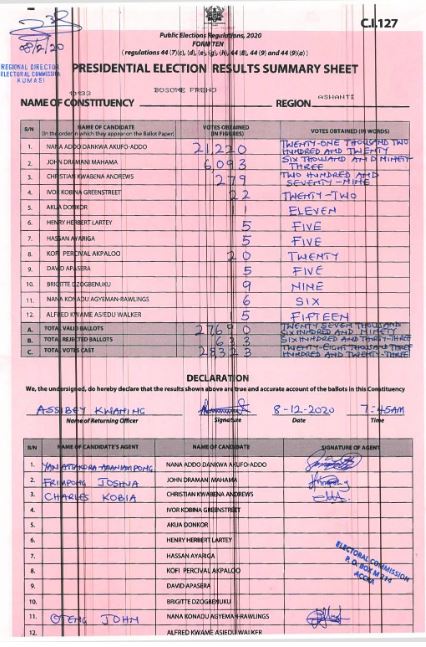 C.I.127
Public Elections Regulations, 2020
FORM TEN
(regulations 44 (7)(c), (d), (e), (g), (h), 44 (8), 44 (9) and 44 (9)(a))
08/12/20
REGIONAL DIRECTOR
ELECTORAL COMMISSION
KUMASI
PRESIDENTIAL ELECTION RESULTS SUMMARY SHEET
NAME OF CONSTITUENCY BOSOME FREHO REGION ASHANTI
S/N NAME OF CANDIDATE VOTES OBTAINED VOTES OBTAINED (IN WORDS)
(In the order in which they appear on the Ballot Paper) (IN FIGURES)
1. NANA ADDO DANKWA AKUFO-ADDO 21,220 TWENTY-ONE THOUSAND TWO HUNDRED AND TWENTY
2. JOHN DRAMANI MAHAMA 6,093 SIX THOUSAND AND NINETY THREE
3. CHRISTIAN KWABENA ANDREWS 279 TWO HUNDRED AND SEVENTY-NINE
4. IVOR KOBINA GREENSTREET 22 TWENTY-TWO
5. AKUA DONKOR ELEVEN
6. HENRY HERBERT LARTEY 5 FIVE
7. HASSAN AYARIGA 5 FIVE
8. KOFI PERCIVAL AKPALOO 20 TWENTY
9. DAVID APASERA 5 FIVE
10. BRIGITTE DZOGBENUKU 9 NINE
11. NANA KONADU AGYEMAN-RAWLINGS 6 SIX
12. ALFRED KWAME ASIEDU WALKER 5 FIFTEEN
A. TOTAL VALID BALLOTS 27690 TWENTY SEVEN THOUSAND SIX HUNDRED AND NINETY
B. TOTAL REJECTED BALLOTS 633 SIX HUNDRED AND THIRTY-THREE
C. TOTAL VOTES CAST 28323 TWENTY-EIGHT THOUSAND THREE HUNDRED AND TWENTY-THREE
DECLARATION
We, the undersigned, do hereby declare that the results shown above are true and accurate account of the ballots in this Constituency
ASSIBEY KWAMING 8-12-2020 7:45AM
Name of Returning Officer Signature Date Time
S/N NAME OF CANDIDATE'S AGENT NAME OF CANDIDATE SIGNATURE OF AGENT
1. NANA ADDO DANKWA AKUFO-ADDO
2. FRIMPONG JOSHUA JOHN DRAMANI MAHAMA
3. CHARLES KOBIA CHRISTIAN KWABENA ANDREWS
4. IVOR KOBINA GREENSTREET
5. AKUA DONKOR
6. HENRY HERBERT LARTEY
7. HASSAN AYARIGA
8. KOFI PERCIVAL AKPALOO
9. DAVID APASERA
10. BRIGITTE DZOGBENUKU
11. OTENG JOHN NANA KONADU AGYEMAN-RAWLINGS
12. ALFRED KWAME ASIEDU WALKER
ELECTORAL COMMISSION
P. O. BOX M 214
ACCRA